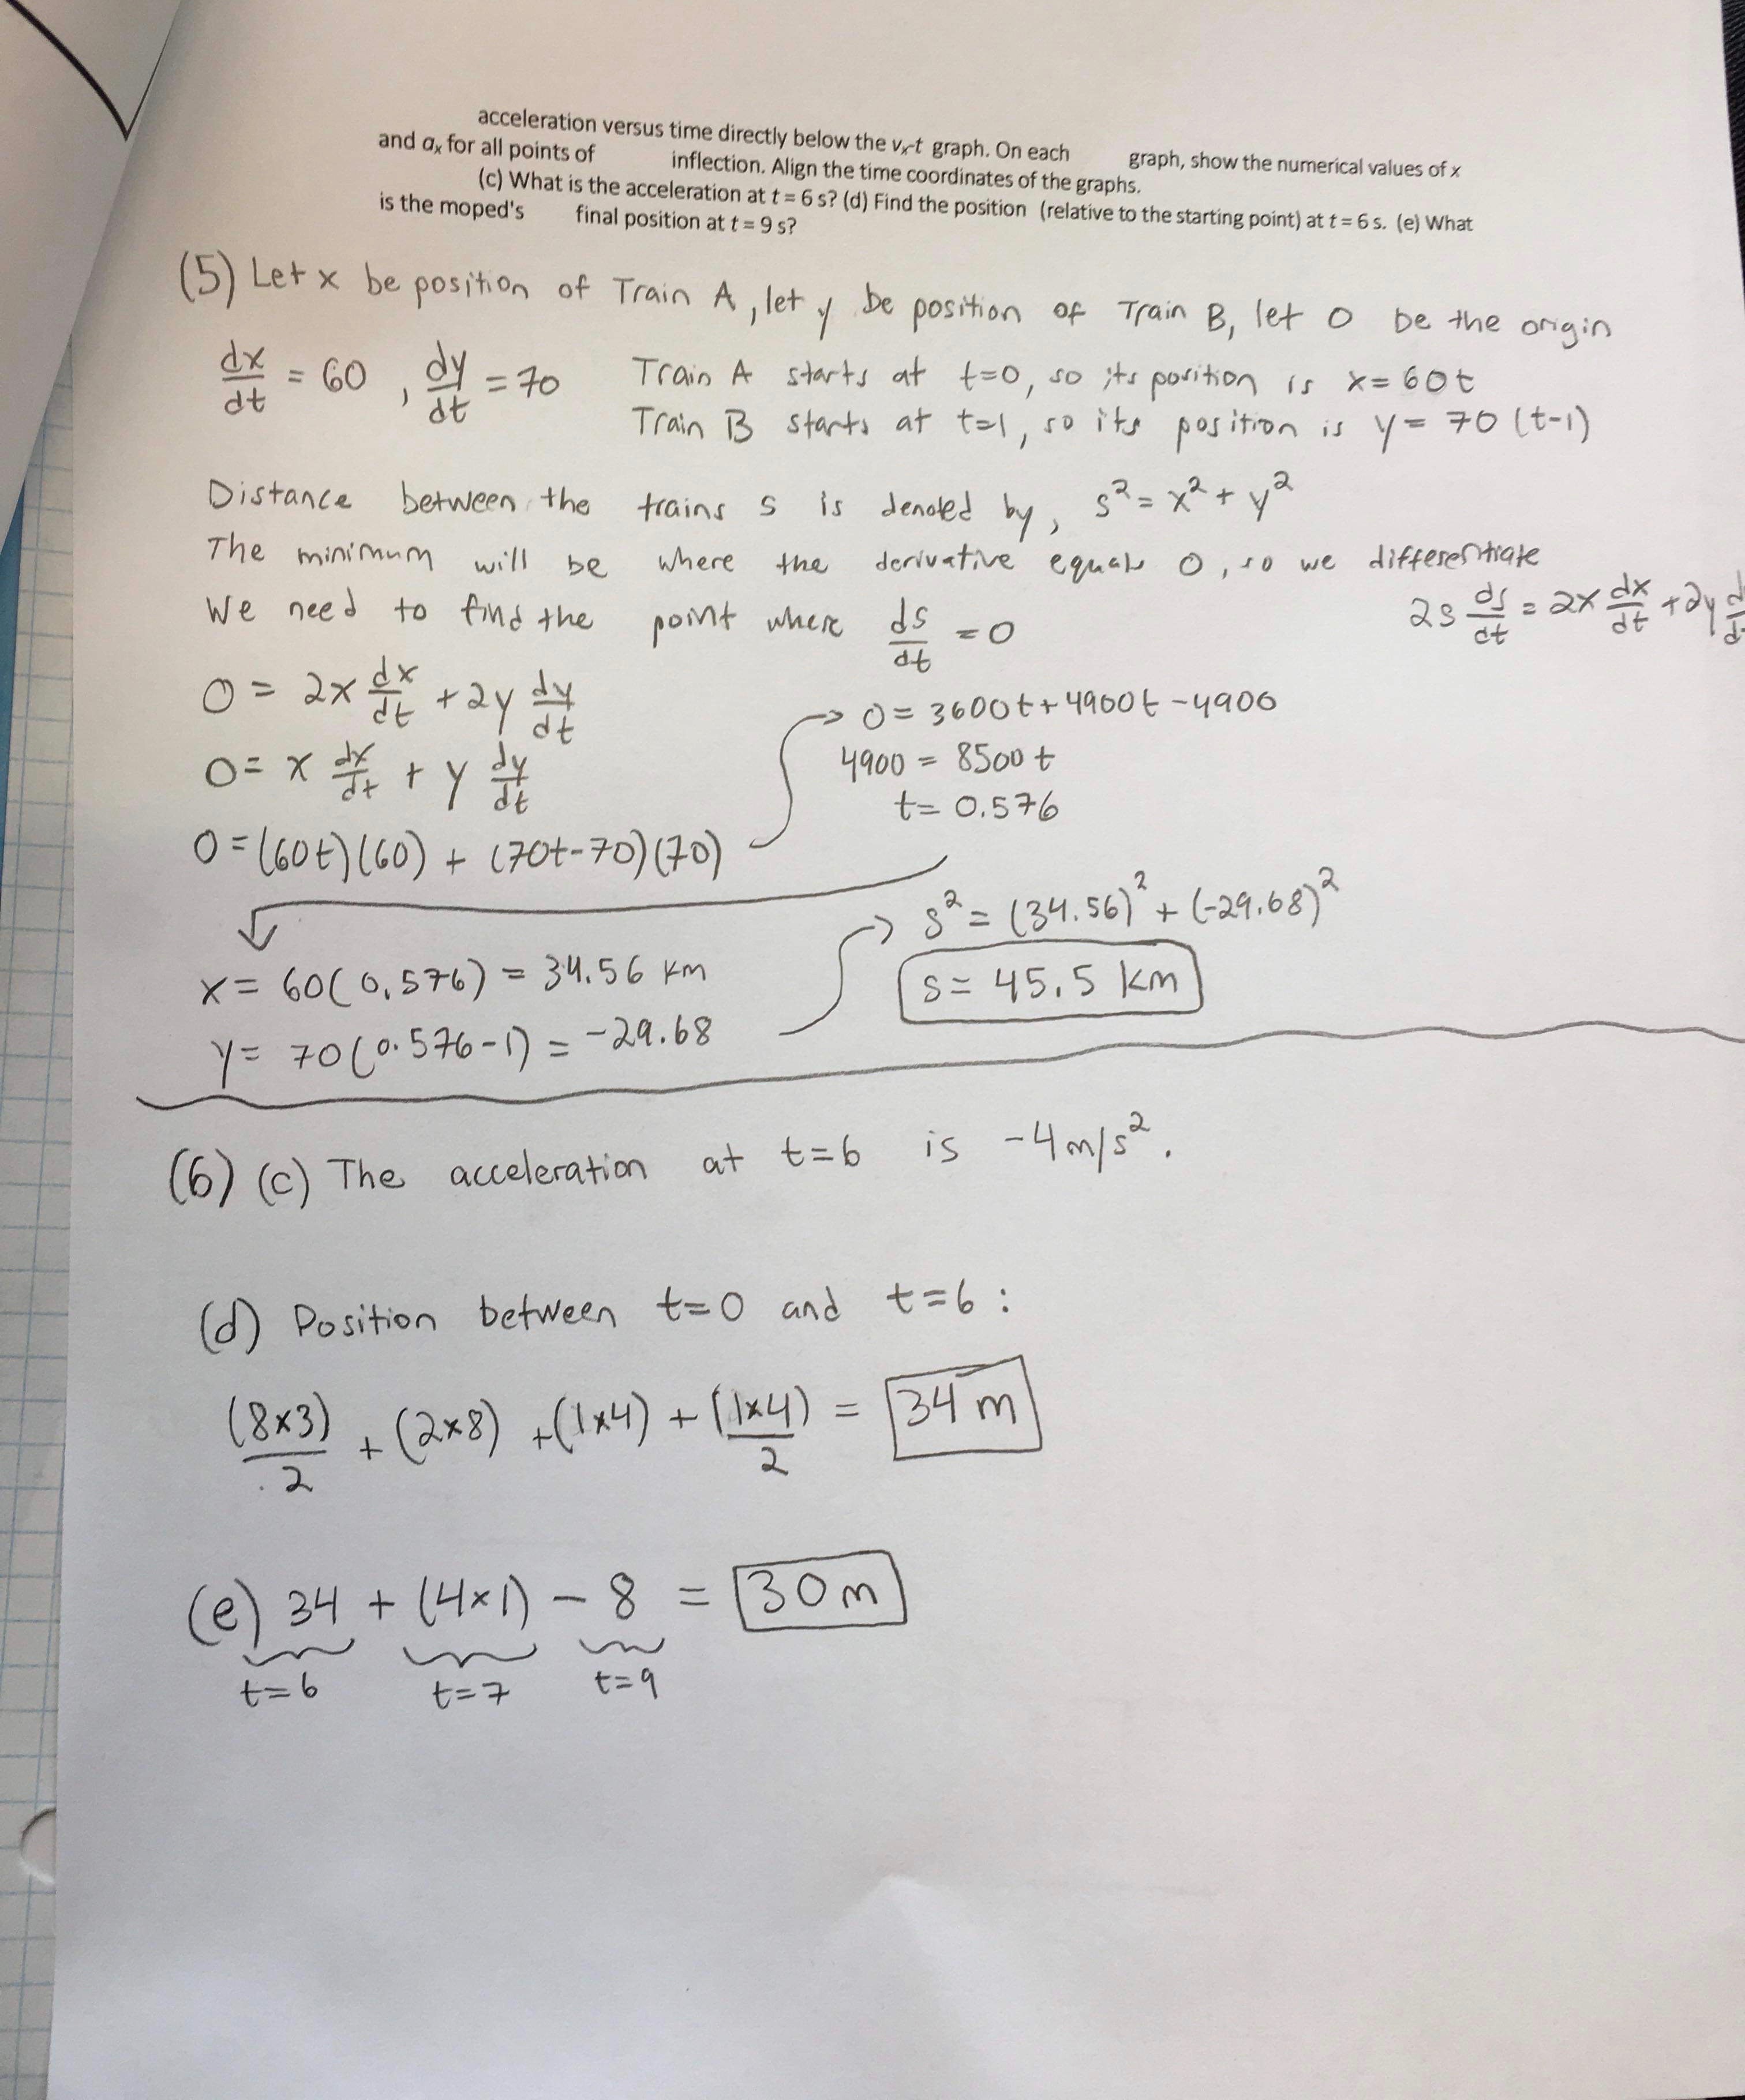 acceleration versus time directly below the vₓ-t graph. On each graph, show the numerical values of x
and aₓ for all points of inflection. Align the time coordinates of the graphs.
(c) What is the acceleration at t = 6 s? (d) Find the position (relative to the starting point) at t = 6 s. (e) What
is the moped's final position at t = 9 s?
(5) Let x be position of Train A, let y be position of Train B, let 0 be the origin
dx/dt = 60, dy/dt = 70 Train A starts at t=0, so its position is x=60t
Train B starts at t=1, so its position is y = 70(t-1)
Distance between the trains s is denoted by, s² = x² + y²
The minimum will be where the derivative equals 0, so we differentiate
2s ds/dt = 2x dx/dt + 2y
We need to find the point where ds/dt = 0
0 = 2x dx/dt + 2y dy/dt
0 = x dx/dt + y dy/dt
0 = (60t)(60) + (70t-70)(70)
→ 0 = 3600t + 4900t - 4900
4900 = 8500t
t = 0.576
x = 60(0.576) = 34.56 km
y = 70(0.576-1) = -29.68
→ s² = (34.56)² + (-29.68)²
s = 45.5 km
(6) (c) The acceleration at t=6 is -4 m/s².
(d) Position between t=0 and t=6:
(8×3)/2 + (2×8) + (1×4) + (1×4)/2 = 34 m
(e) 34 + (4×1) - 8 = 30 m
t=6 t=7 t=9